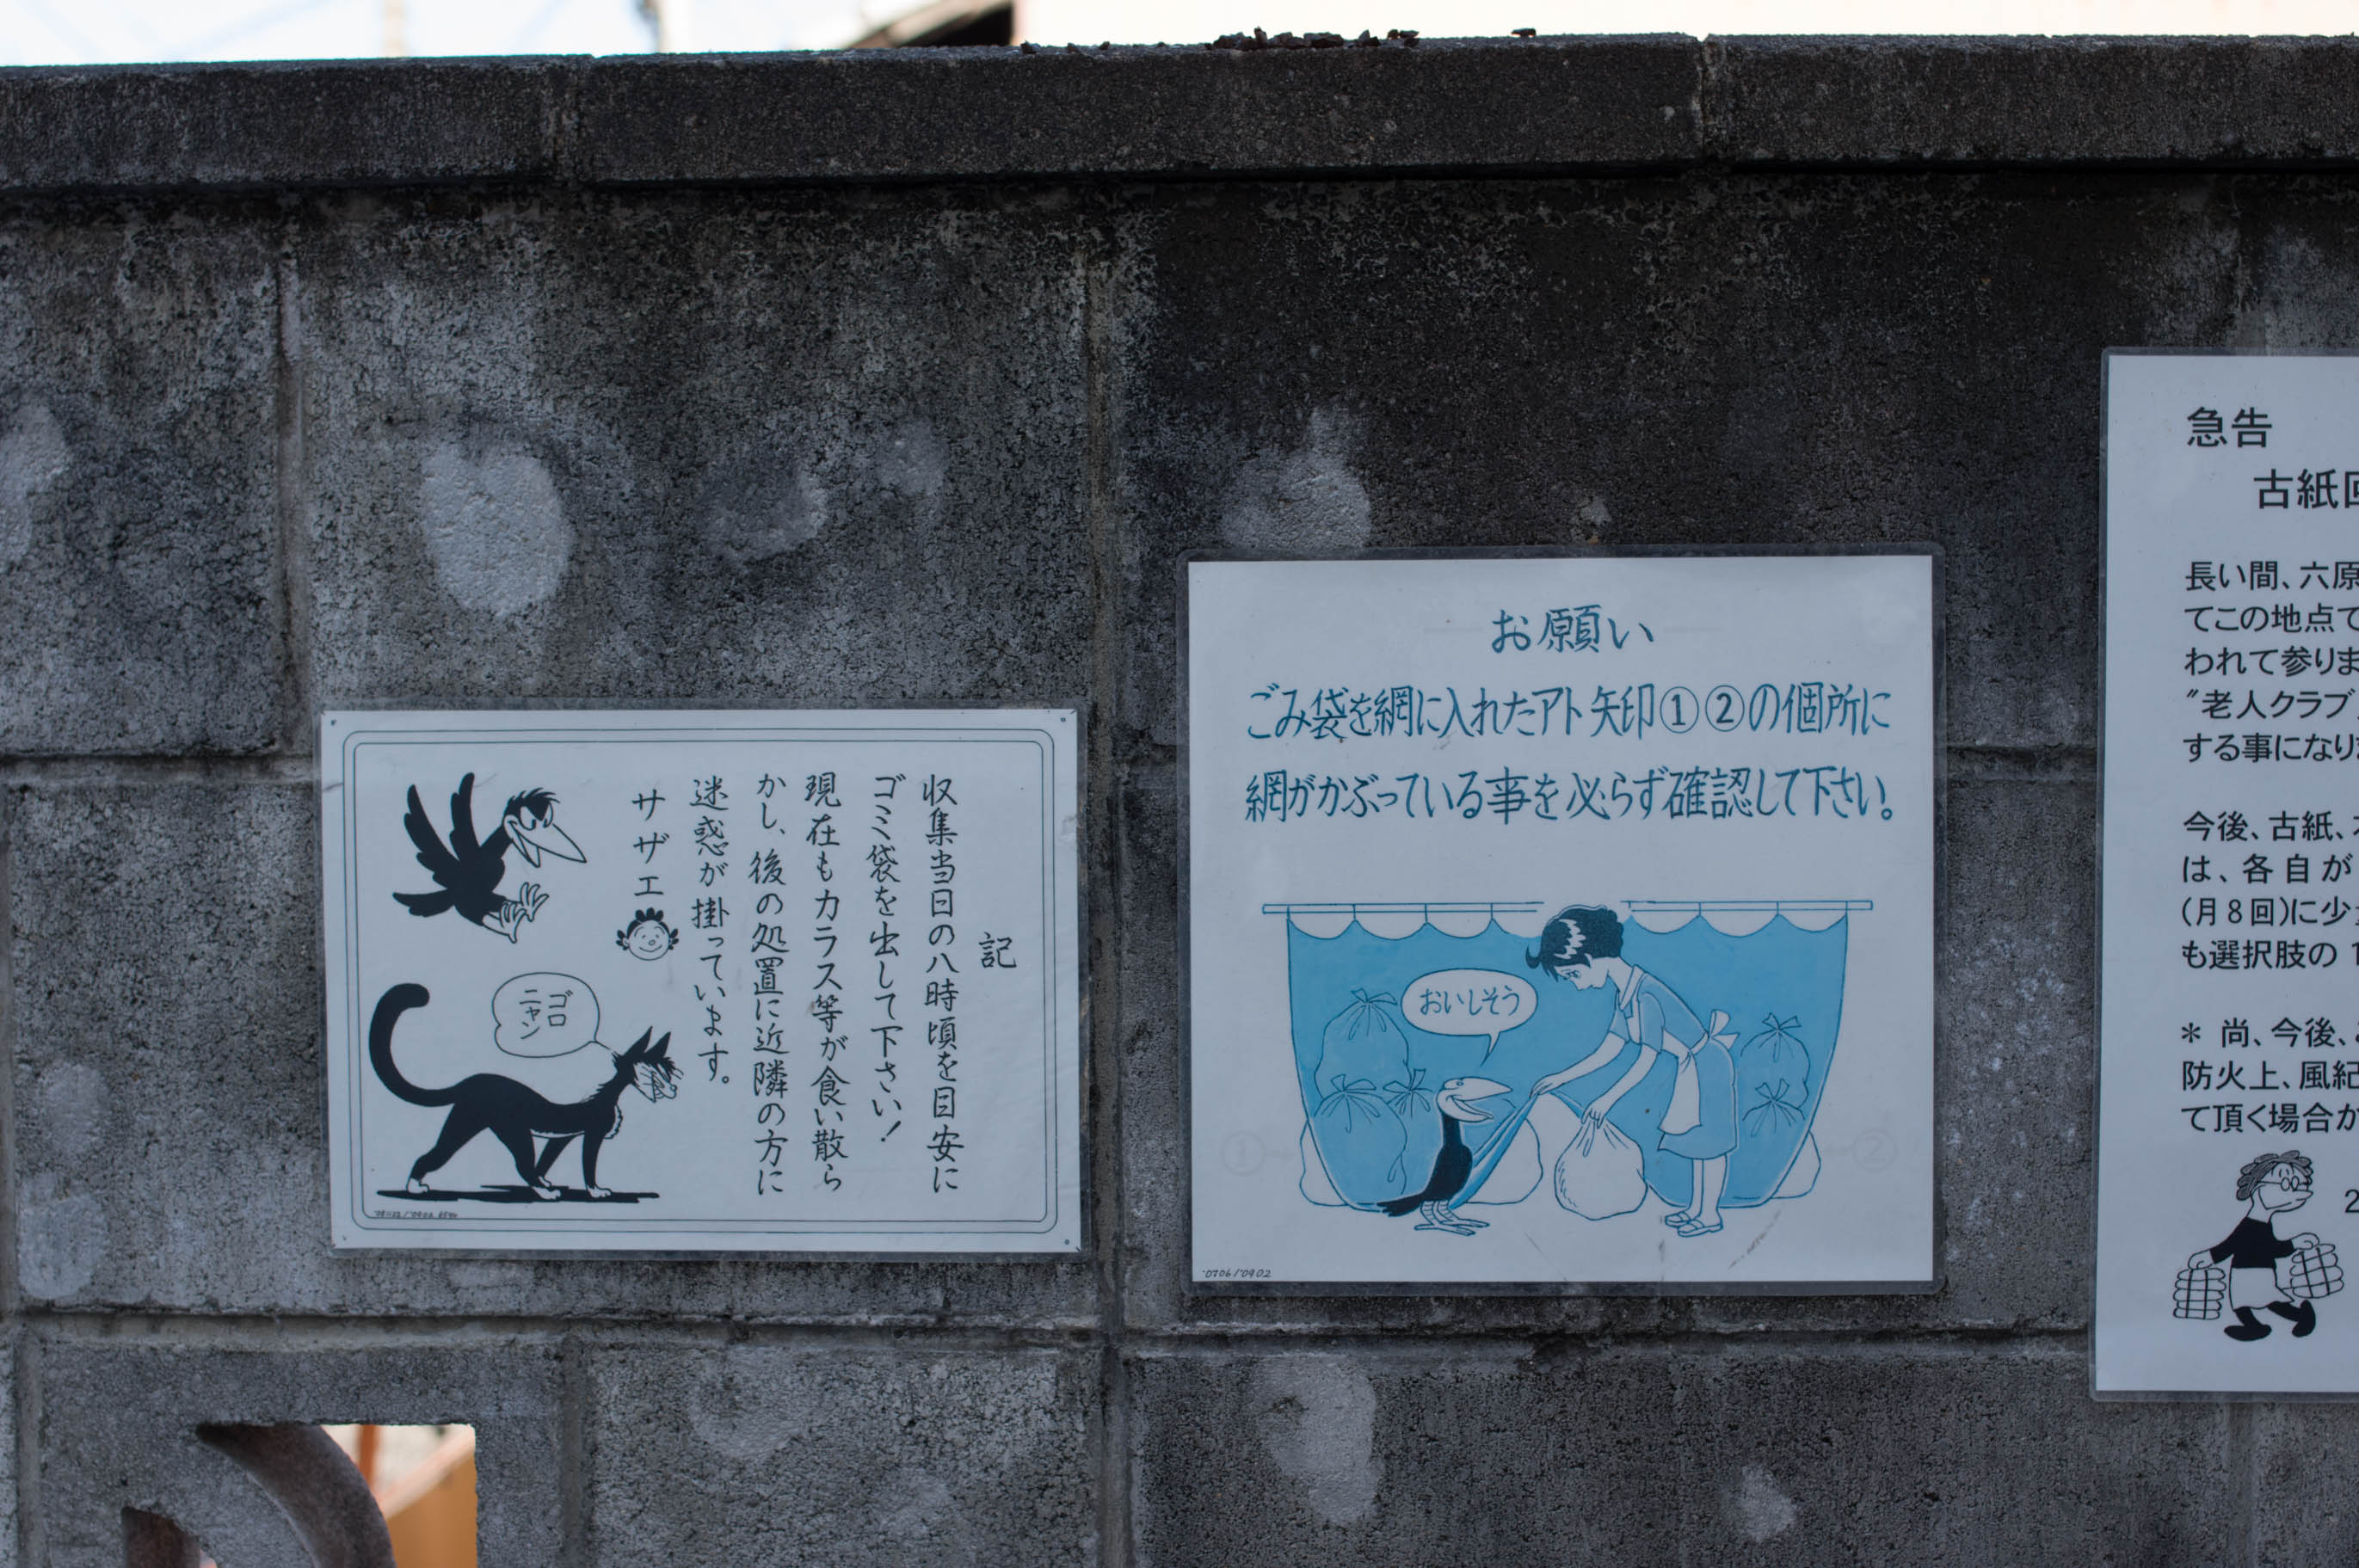 記
収集当日の八時頃を目安に
ゴミ袋を出して下さい！
現在もカラス等が食い散ら
かし、後の処置に近隣の方に
迷惑が掛っています。
サザエ
ゴロ
ニャン
お願い
ごみ袋を網に入れたアト矢印①②の個所に
網がかぶっている事を必らず確認して下さい。
おいしそう
①
②
'0706/'0902
急告
古紙回
長い間、六原
てこの地点で
われて参りま
〝老人クラブ
する事になりま
今後、古紙、
は、各自が
(月8回)に少
も選択肢の1
＊ 尚、今後、
防火上、風紀
て頂く場合か
2